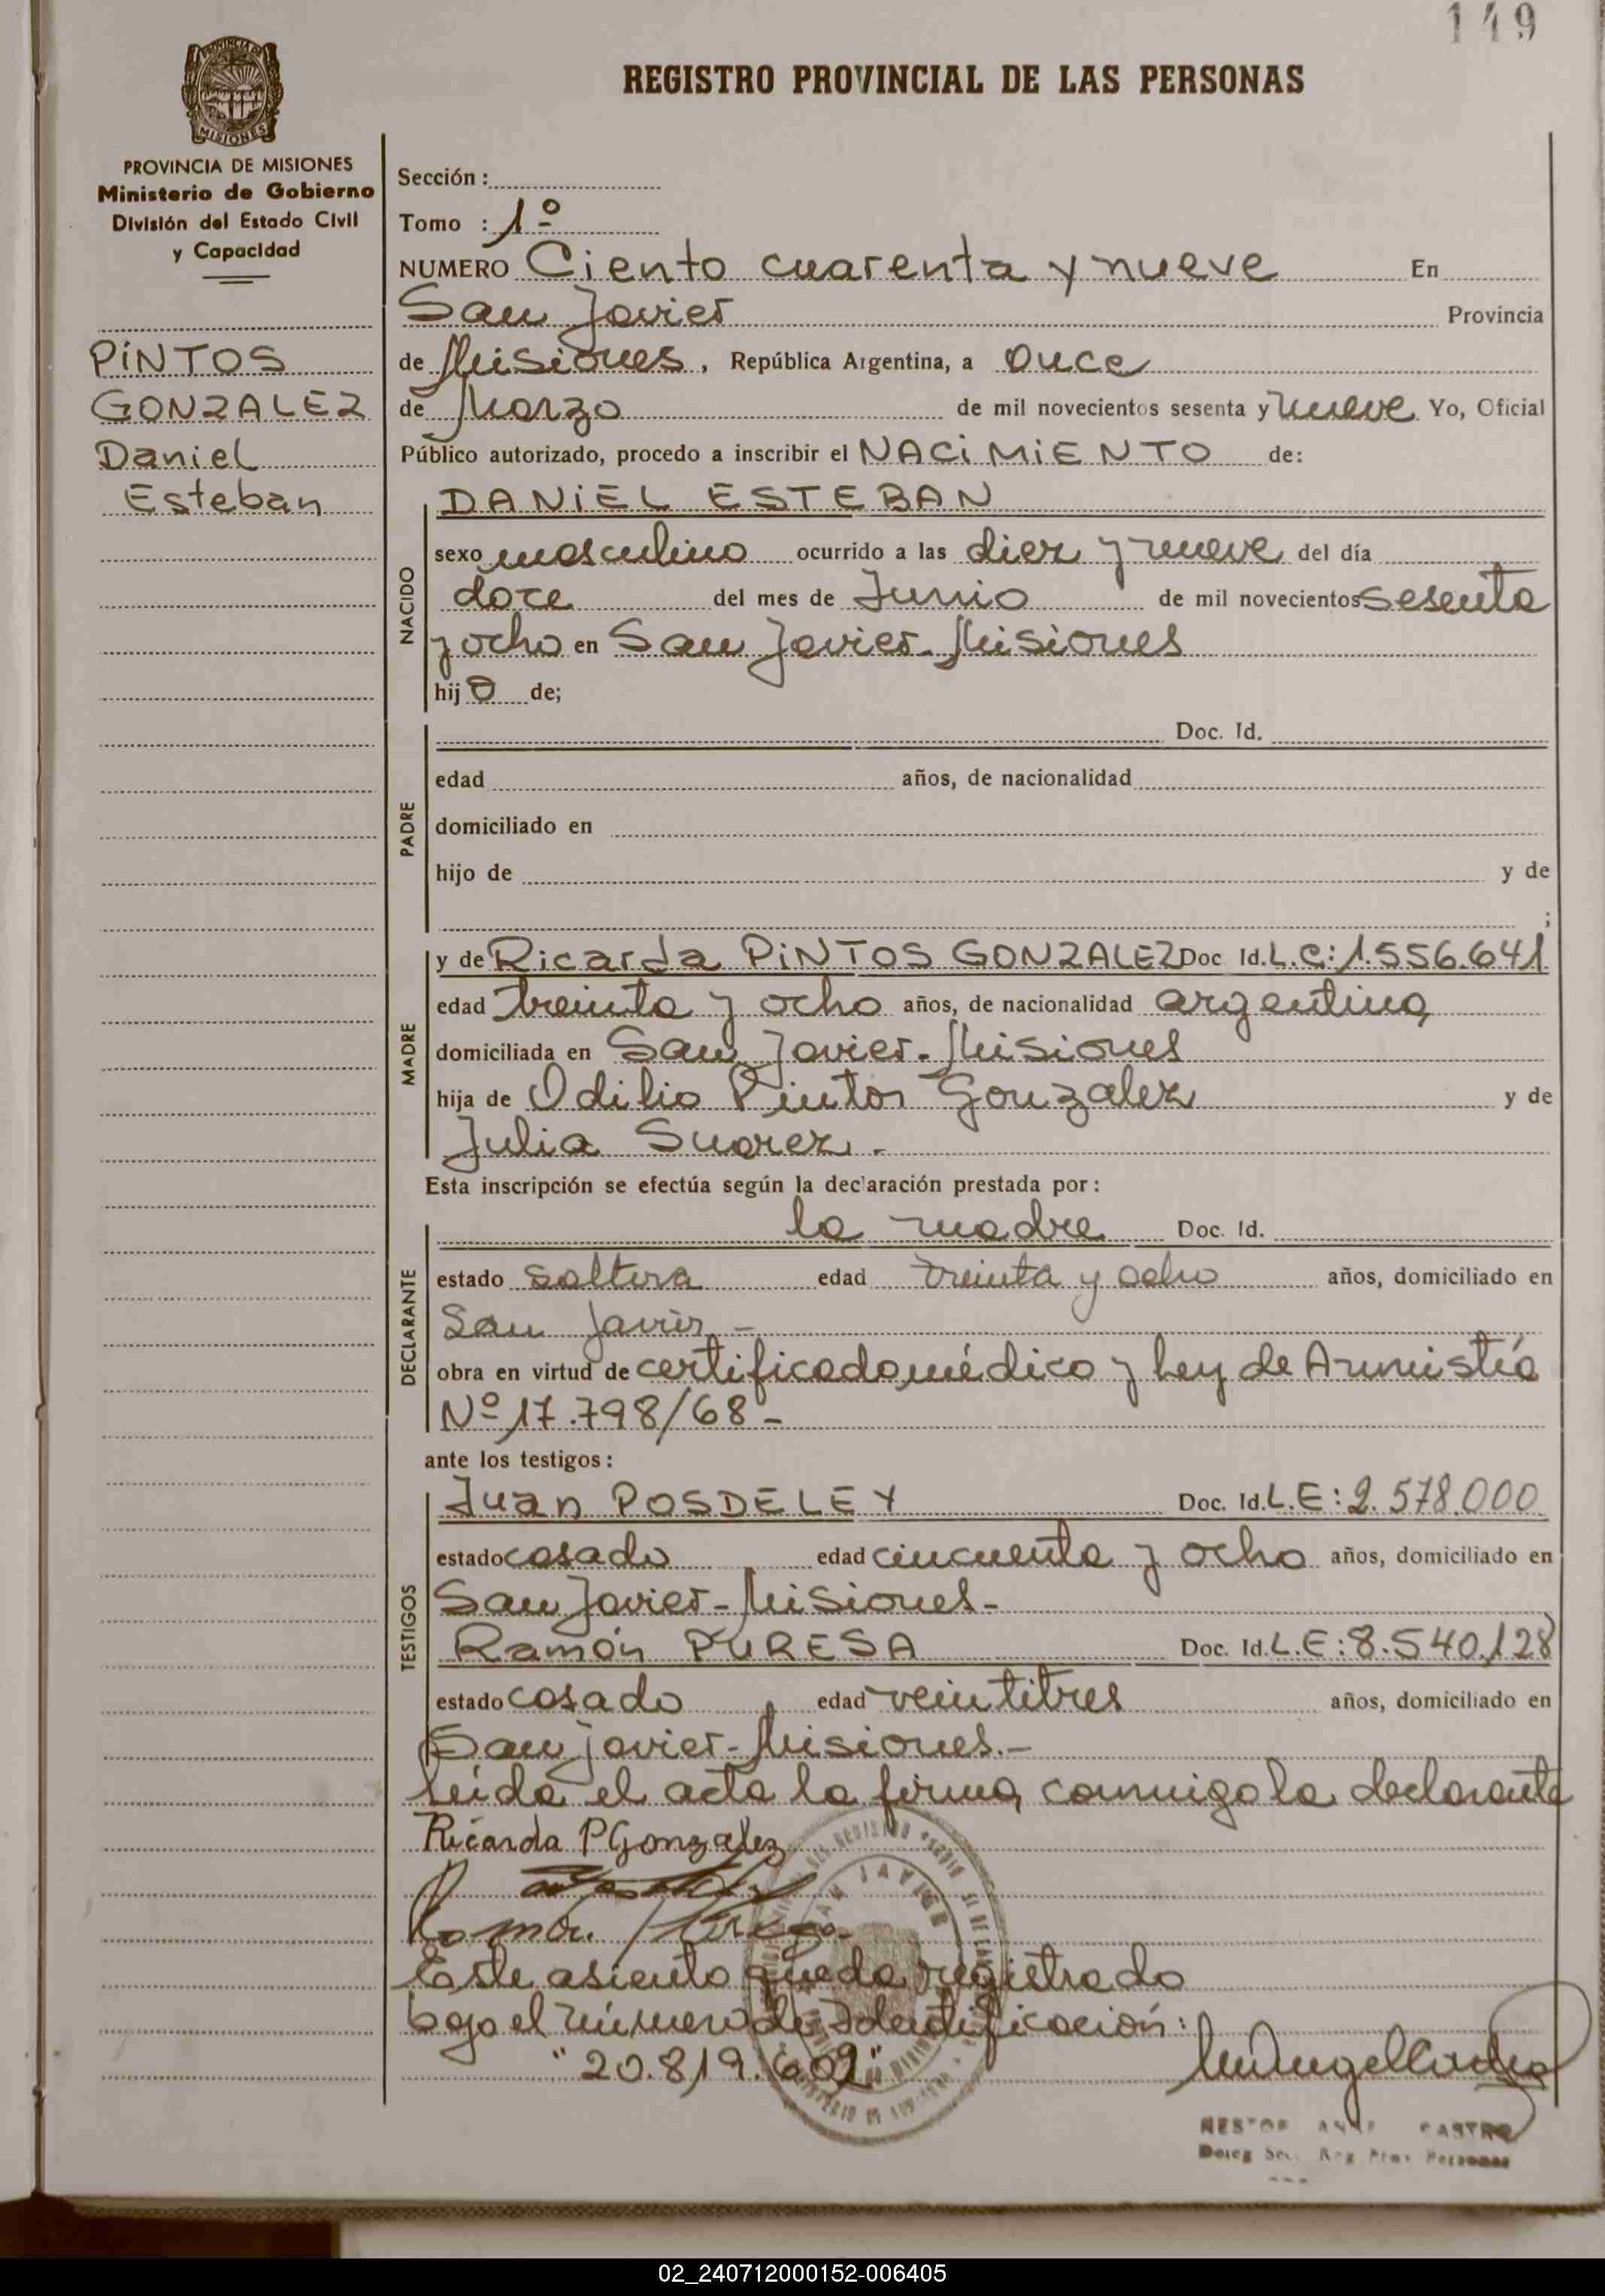 149
REGISTRO PROVINCIAL DE LAS PERSONAS
MISIONES
PROVINCIA DE MISIONES
Ministerio de Gobierno
División del Estado Civil
y Capacidad
PINTOS
GONZALEZ
Daniel
Esteban
Sección :
Tomo : 1º
NUMERO Ciento cuarenta y nueve En
San Javier Provincia
de Misiones, República Argentina, a once
de Marzo de mil novecientos sesenta y nueve Yo, Oficial
Público autorizado, procedo a inscribir el NACIMIENTO de:
NACIDO
DANIEL ESTEBAN
sexo masculino ocurrido a las diez y nueve del día
doce del mes de Junio de mil novecientos sesenta
y ocho en San Javier-Misiones
hijo de;
PADRE
Doc. Id.
edad años, de nacionalidad
domiciliado en
hijo de y de
;
MADRE
y de Ricarda PINTOS GONZALEZ Doc Id. L.C: 1.556.641
edad treinta y ocho años, de nacionalidad argentina
domiciliada en San Javier-Misiones
hija de Odilio Pintos Gonzalez y de
Julia Suarez.-
Esta inscripción se efectúa según la declaración prestada por:
DECLARANTE
la madre Doc. Id.
estado soltera edad treinta y ocho años, domiciliado en
San Javier-
obra en virtud de certificado médico y Ley de Amnistía
Nº 17.798/68-
ante los testigos:
TESTIGOS
Juan POSDELEY Doc. Id. L.E: 2.578.000
estado casado edad cincuenta y ocho años, domiciliado en
San Javier-Misiones-
Ramón PURESA Doc. Id. L.E: 8.540.128
estado casado edad veintitres años, domiciliado en
San Javier-Misiones.-
Leída el acta la firma conmigo la declarante
Ricarda P Gonzalez
Este asiento queda registrado
bajo el número de Identificación:
"20.819.602"
SAN JAVIER
NESTOR CASTRO
Personas
02_240712000152-006405